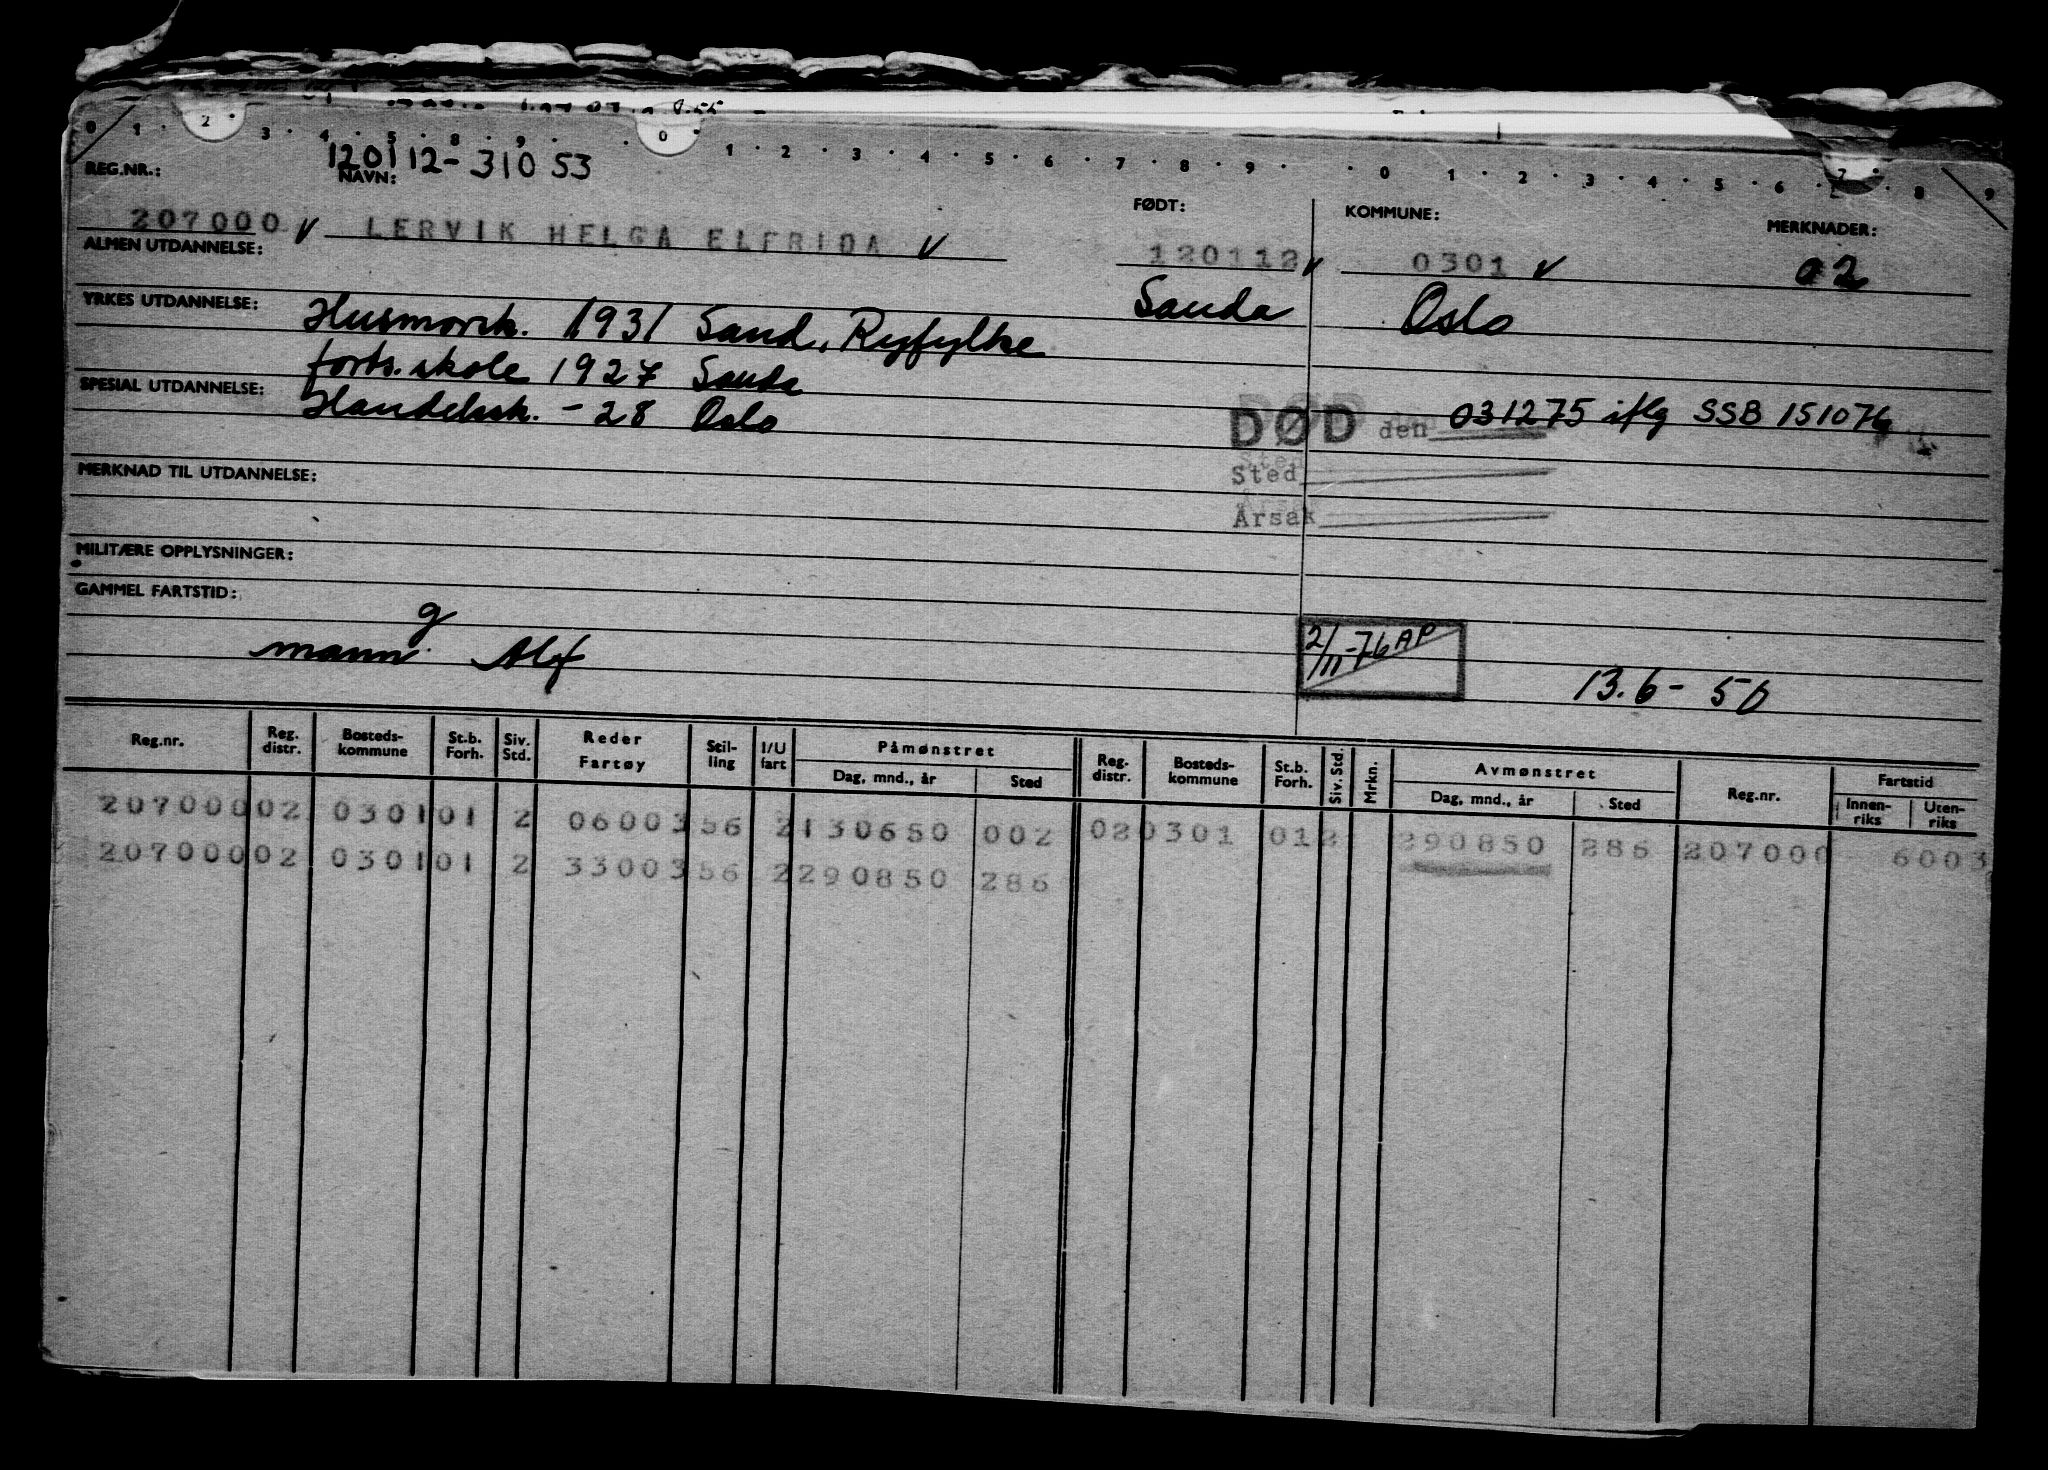 0 1 2 3 4 5 8 9 0 1 2 3 4 5 6 7 8 9 0 1 2 3 4 5 6 7 8 9
120112-31053
REG.NR.: NAVN: FØDT: KOMMUNE: MERKNADER:
207000 LERVIK HELGA ELFRIDA 120112 0301 02
ALMEN UTDANNELSE:
Sauda Oslo
YRKES UTDANNELSE: Husmorsk. 1931 Sand, Ryfylke
forts. skole 1927 Sauda
SPESIAL UTDANNELSE: Handelssk. - 28 Oslo
DØD den 031275 iflg SSB 151076
Sted
Årsak
MERKNAD TIL UTDANNELSE:
MILITÆRE OPPLYSNINGER:
GAMMEL FARTSTID:
g
mann Alf
2/11-76 AP
13.6-50
Reg.nr. Reg. distr. Bosteds-kommune St.b. Forh. Siv. Std. Reder Fartøy Stil-ling I/U fart Påmønstret Dag, mnd., år Sted Reg. distr. Bosteds-kommune St.b. Forh. Siv. Std. Mrkn. Avmønstret Dag, mnd., år Sted Reg.nr. Fartstid Innen-riks Uten-riks
207000 02 0301 01 2 06003 56 2 130650 002 02 0301 01 2 290850 286 207000 6003
207000 02 0301 01 2 33003 56 2 290850 286